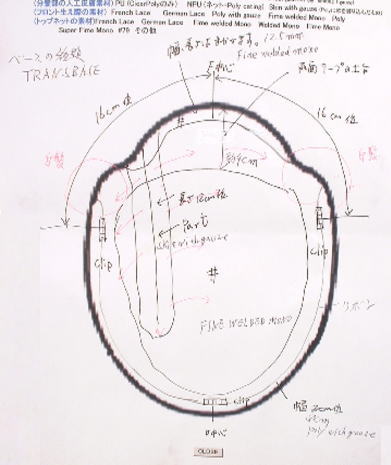 (分髪部の人工皮膚素材) PU (ClearPolyのみ) NPU (ネット-Poly
(フロント生え際の素材) French Lace German Lace Poly with gauze Fime welded Mono Poly
(トップネットの素材) French Lace German Lace Fime Mono Welded Mono Fime Mono
Super Fime Mono #76 その他
ベースの種類
TRANSBASE
12.5mm
Fine welded mono
中心
両面テープの土台
16cm位
16cm位
分髪
分髪
長さ12cm位
Part
skin with gauze
clip
clip
#
FINE WELDED MONO
リボン
clip
中心
幅2cm位
poly with gauze
CLOSE